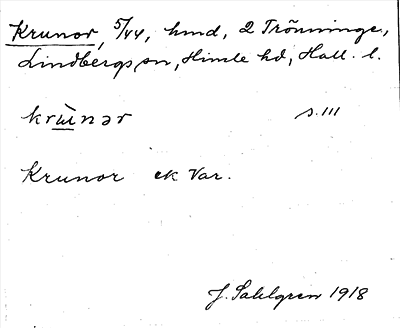 Krunor, 5/44, hmd, 2 Trönninge,
Lindbergs sn, Himle hd, Hall. l.
krùnər s. 111
Krunor ek Var.
J. Sahlgren 1918